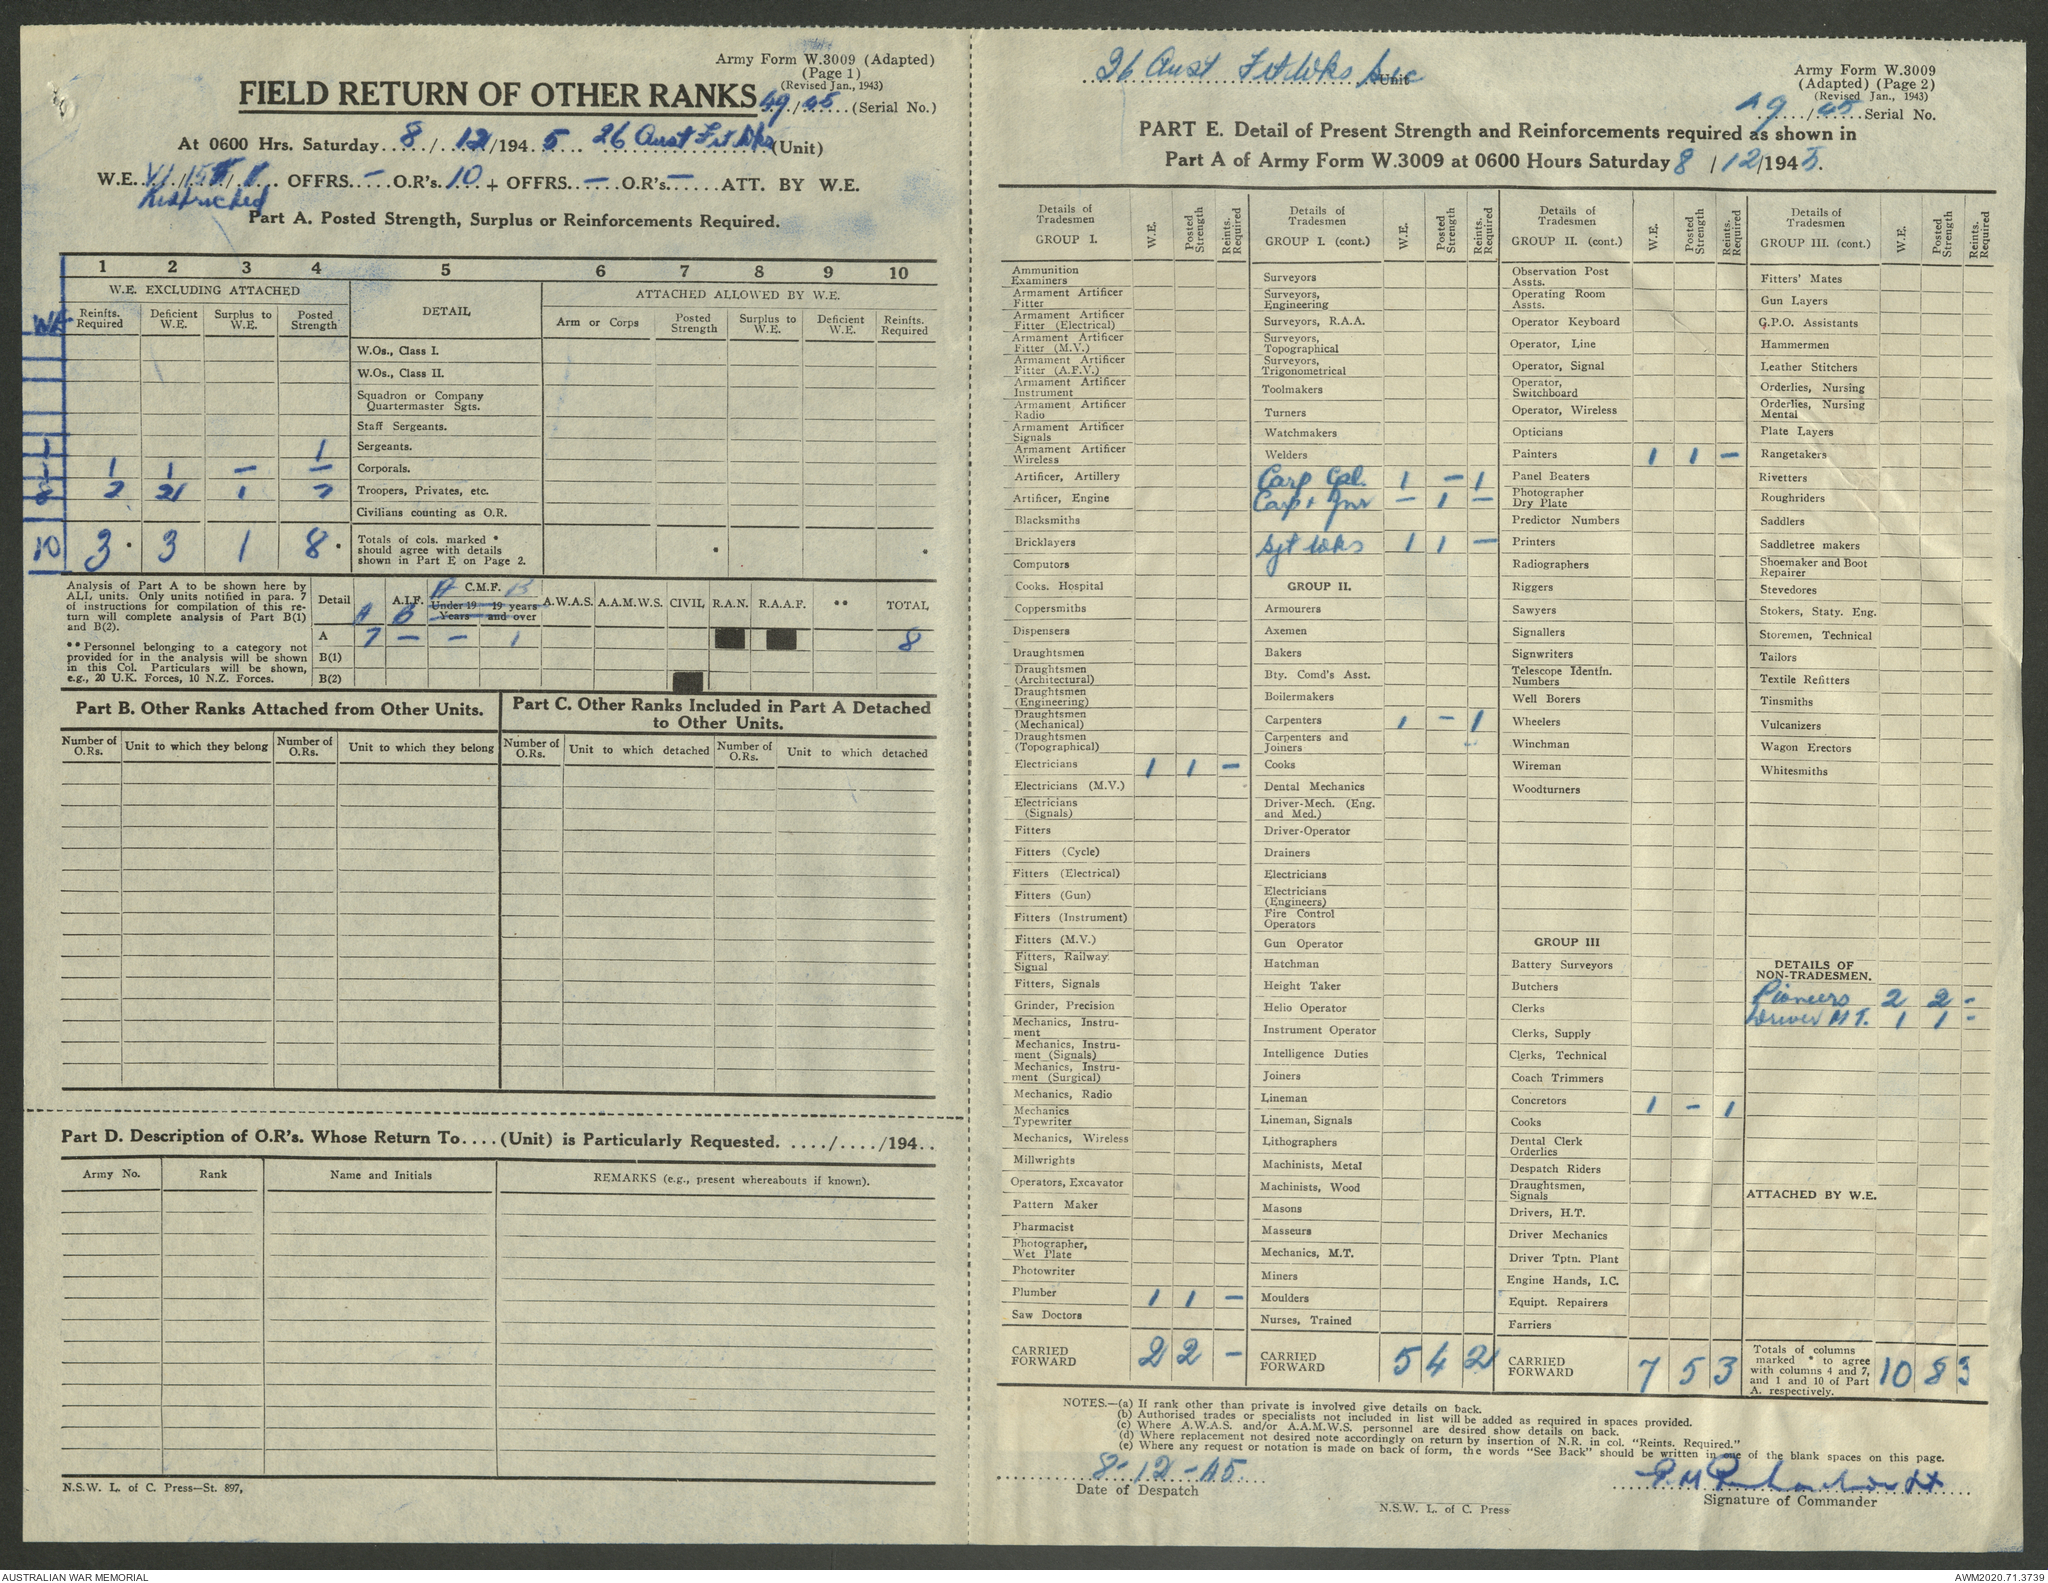 Army Form W.3009 (Adapted)
(Page 1)
(Revised Jan., 1943)
FIELD RETURN OF OTHER RANKS 49/45 (Serial No.)
At 0600 Hrs. Saturday 8/12/1945 26 Aust Frt Wks (Unit)
W.E. VI/15 / OFFRS. – O.R's. 10 + OFFRS. – O.R's. – ATT. BY W.E.
Restricted
Part A. Posted Strength, Surplus or Reinforcements Required.
1 2 3 4 5 6 7 8 9 10
W.E. EXCLUDING ATTACHED DETAIL ATTACHED ALLOWED BY W.E.
WE Reinfts. Required Deficient W.E. Surplus to W.E. Posted Strength Arm or Corps Posted Strength Surplus to W.E. Deficient W.E. Reinfts. Required
W.Os., Class I.
W.Os., Class II.
Squadron or Company Quartermaster Sgts.
Staff Sergeants.
1 1 Sergeants.
1 1 1 – – Corporals.
8 2 2 1 7 Troopers, Privates, etc.
Civilians counting as O.R.
10 3 * 3 1 8 * Totals of cols. marked *
should agree with details
shown in Part E on Page 2.
Analysis of Part A to be shown here by
ALL units. Only units notified in para. 7
of instructions for compilation of this re-
turn will complete analysis of Part B(1)
and B(2).
** Personnel belonging to a category not
provided for in the analysis will be shown
in this Col. Particulars will be shown,
e.g., 20 U.K. Forces, 10 N.Z. Forces.
Detail A.I.F. A B C.M.F. A B Under 19 Years 19 years and over A.W.A.S. A.A.M.W.S. CIVIL R.A.N. R.A.A.F. ** TOTAL
A 7 – – 1 8
B(1)
B(2)
Part B. Other Ranks Attached from Other Units.
Number of O.Rs. Unit to which they belong Number of O.Rs. Unit to which they belong
Part C. Other Ranks Included in Part A Detached
to Other Units.
Number of O.Rs. Unit to which detached Number of O.Rs. Unit to which detached
Part D. Description of O.R's. Whose Return To....(Unit) is Particularly Requested. ..../..../194..
Army No. Rank Name and Initials REMARKS (e.g., present whereabouts if known).
N.S.W. L. of C. Press—St. 897,
26 Aust Frt Wks Sec Unit
Army Form W.3009
(Adapted) (Page 2)
(Revised Jan., 1943)
49/45 Serial No.
PART E. Detail of Present Strength and Reinforcements required as shown in
Part A of Army Form W.3009 at 0600 Hours Saturday 8/12/1945.
Details of Tradesmen GROUP I. W.E. Posted Strength Reints. Required
Ammunition Examiners
Armament Artificer Fitter
Armament Artificer Fitter (Electrical)
Armament Artificer Fitter (M.V.)
Armament Artificer Fitter (A.F.V.)
Armament Artificer Instrument
Armament Artificer Radio
Armament Artificer Signals
Armament Artificer Wireless
Artificer, Artillery
Artificer, Engine
Blacksmiths
Bricklayers
Computors
Cooks. Hospital
Coppersmiths
Dispensers
Draughtsmen
Draughtsmen (Architectural)
Draughtsmen (Engineering)
Draughtsmen (Mechanical)
Draughtsmen (Topographical)
Electricians 1 1 –
Electricians (M.V.)
Electricians (Signals)
Fitters
Fitters (Cycle)
Fitters (Electrical)
Fitters (Gun)
Fitters (Instrument)
Fitters (M.V.)
Fitters, Railway Signal
Fitters, Signals
Grinder, Precision
Mechanics, Instru-ment
Mechanics, Instru-ment (Signals)
Mechanics, Instru-ment (Surgical)
Mechanics, Radio
Mechanics Typewriter
Mechanics, Wireless
Millwrights
Operators, Excavator
Pattern Maker
Pharmacist
Photographer, Wet Plate
Photowriter
Plumber 1 1 –
Saw Doctors
CARRIED FORWARD 2 2 –
Details of Tradesmen GROUP I. (cont.) W.E. Posted Strength Reints. Required
Surveyors
Surveyors, Engineering
Surveyors, R.A.A.
Surveyors, Topographical
Surveyors, Trigonometrical
Toolmakers
Turners
Watchmakers
Welders
Carp Cpl. 1 – 1
Carp + Jnr – 1 –
Sgt Wks 1 1 –
GROUP II.
Armourers
Axemen
Bakers
Bty. Comd's Asst.
Boilermakers
Carpenters 1 – 1
Carpenters and Joiners
Cooks
Dental Mechanics
Driver-Mech. (Eng. and Med.)
Driver-Operator
Drainers
Electricians
Electricians (Engineers)
Fire Control Operators
Gun Operator
Hatchman
Height Taker
Helio Operator
Instrument Operator
Intelligence Duties
Joiners
Lineman
Lineman, Signals
Lithographers
Machinists, Metal
Machinists, Wood
Masons
Masseurs
Mechanics, M.T.
Miners
Moulders
Nurses, Trained
CARRIED FORWARD 5 4 2
Details of Tradesmen GROUP II. (cont.) W.E. Posted Strength Reints. Required
Observation Post Assts.
Operating Room Assts.
Operator Keyboard
Operator, Line
Operator, Signal
Operator, Switchboard
Operator, Wireless
Opticians
Painters 1 1 –
Panel Beaters
Photographer Dry Plate
Predictor Numbers
Printers
Radiographers
Riggers
Sawyers
Signallers
Signwriters
Telescope Identfn. Numbers
Well Borers
Wheelers
Winchman
Wireman
Woodturners
GROUP III
Battery Surveyors
Butchers
Clerks
Clerks, Supply
Clerks, Technical
Coach Trimmers
Concretors 1 – 1
Cooks
Dental Clerk Orderlies
Despatch Riders
Draughtsmen, Signals
Drivers, H.T.
Driver Mechanics
Driver Tptn. Plant
Engine Hands, I.C.
Equipt. Repairers
Farriers
CARRIED FORWARD 7 5 3
Details of Tradesmen GROUP III. (cont.) W.E. Posted Strength Reints. Required
Fitters' Mates
Gun Layers
G.P.O. Assistants
Hammermen
Leather Stitchers
Orderlies, Nursing
Orderlies, Nursing Mental
Plate Layers
Rangetakers
Rivetters
Roughriders
Saddlers
Saddletree makers
Shoemaker and Boot Repairer
Stevedores
Stokers, Staty. Eng.
Storemen, Technical
Tailors
Textile Refitters
Tinsmiths
Vulcanizers
Wagon Erectors
Whitesmiths
DETAILS OF NON-TRADESMEN.
Pioneers 2 2 –
Driver M T. 1 1 –
ATTACHED BY W.E.
Totals of columns marked * to agree with columns 4 and 7, and 1 and 10 of Part A. respectively. 10 8 3
NOTES.—(a) If rank other than private is involved give details on back.
(b) Authorised trades or specialists not included in list will be added as required in spaces provided.
(c) Where A.W.A.S. and/or A.A.M.W.S. personnel are desired show details on back.
(d) Where replacement not desired note accordingly on return by insertion of N.R. in col. "Reints. Required."
(e) Where any request or notation is made on back of form, the words "See Back" should be written in one of the blank spaces on this page.
8-12-45
Date of Despatch
Signature of Commander
N.S.W. L. of C. Press
AUSTRALIAN WAR MEMORIAL
AWM2020.71.3739